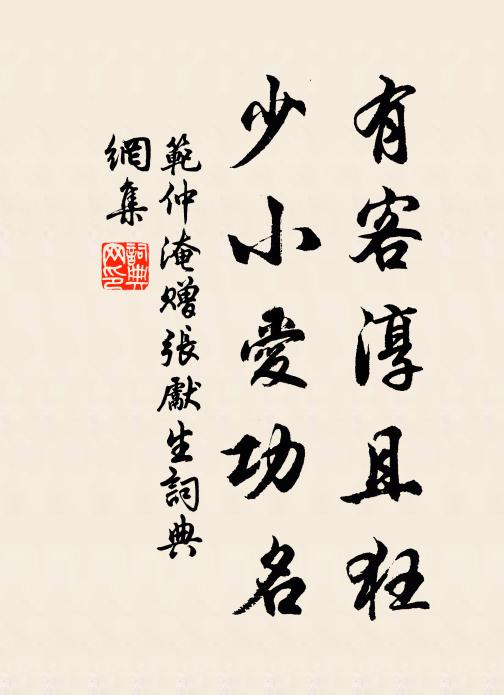 有客淳且狂
少小愛功名
範仲淹贈張獻生詞典
網集
詞典
网印